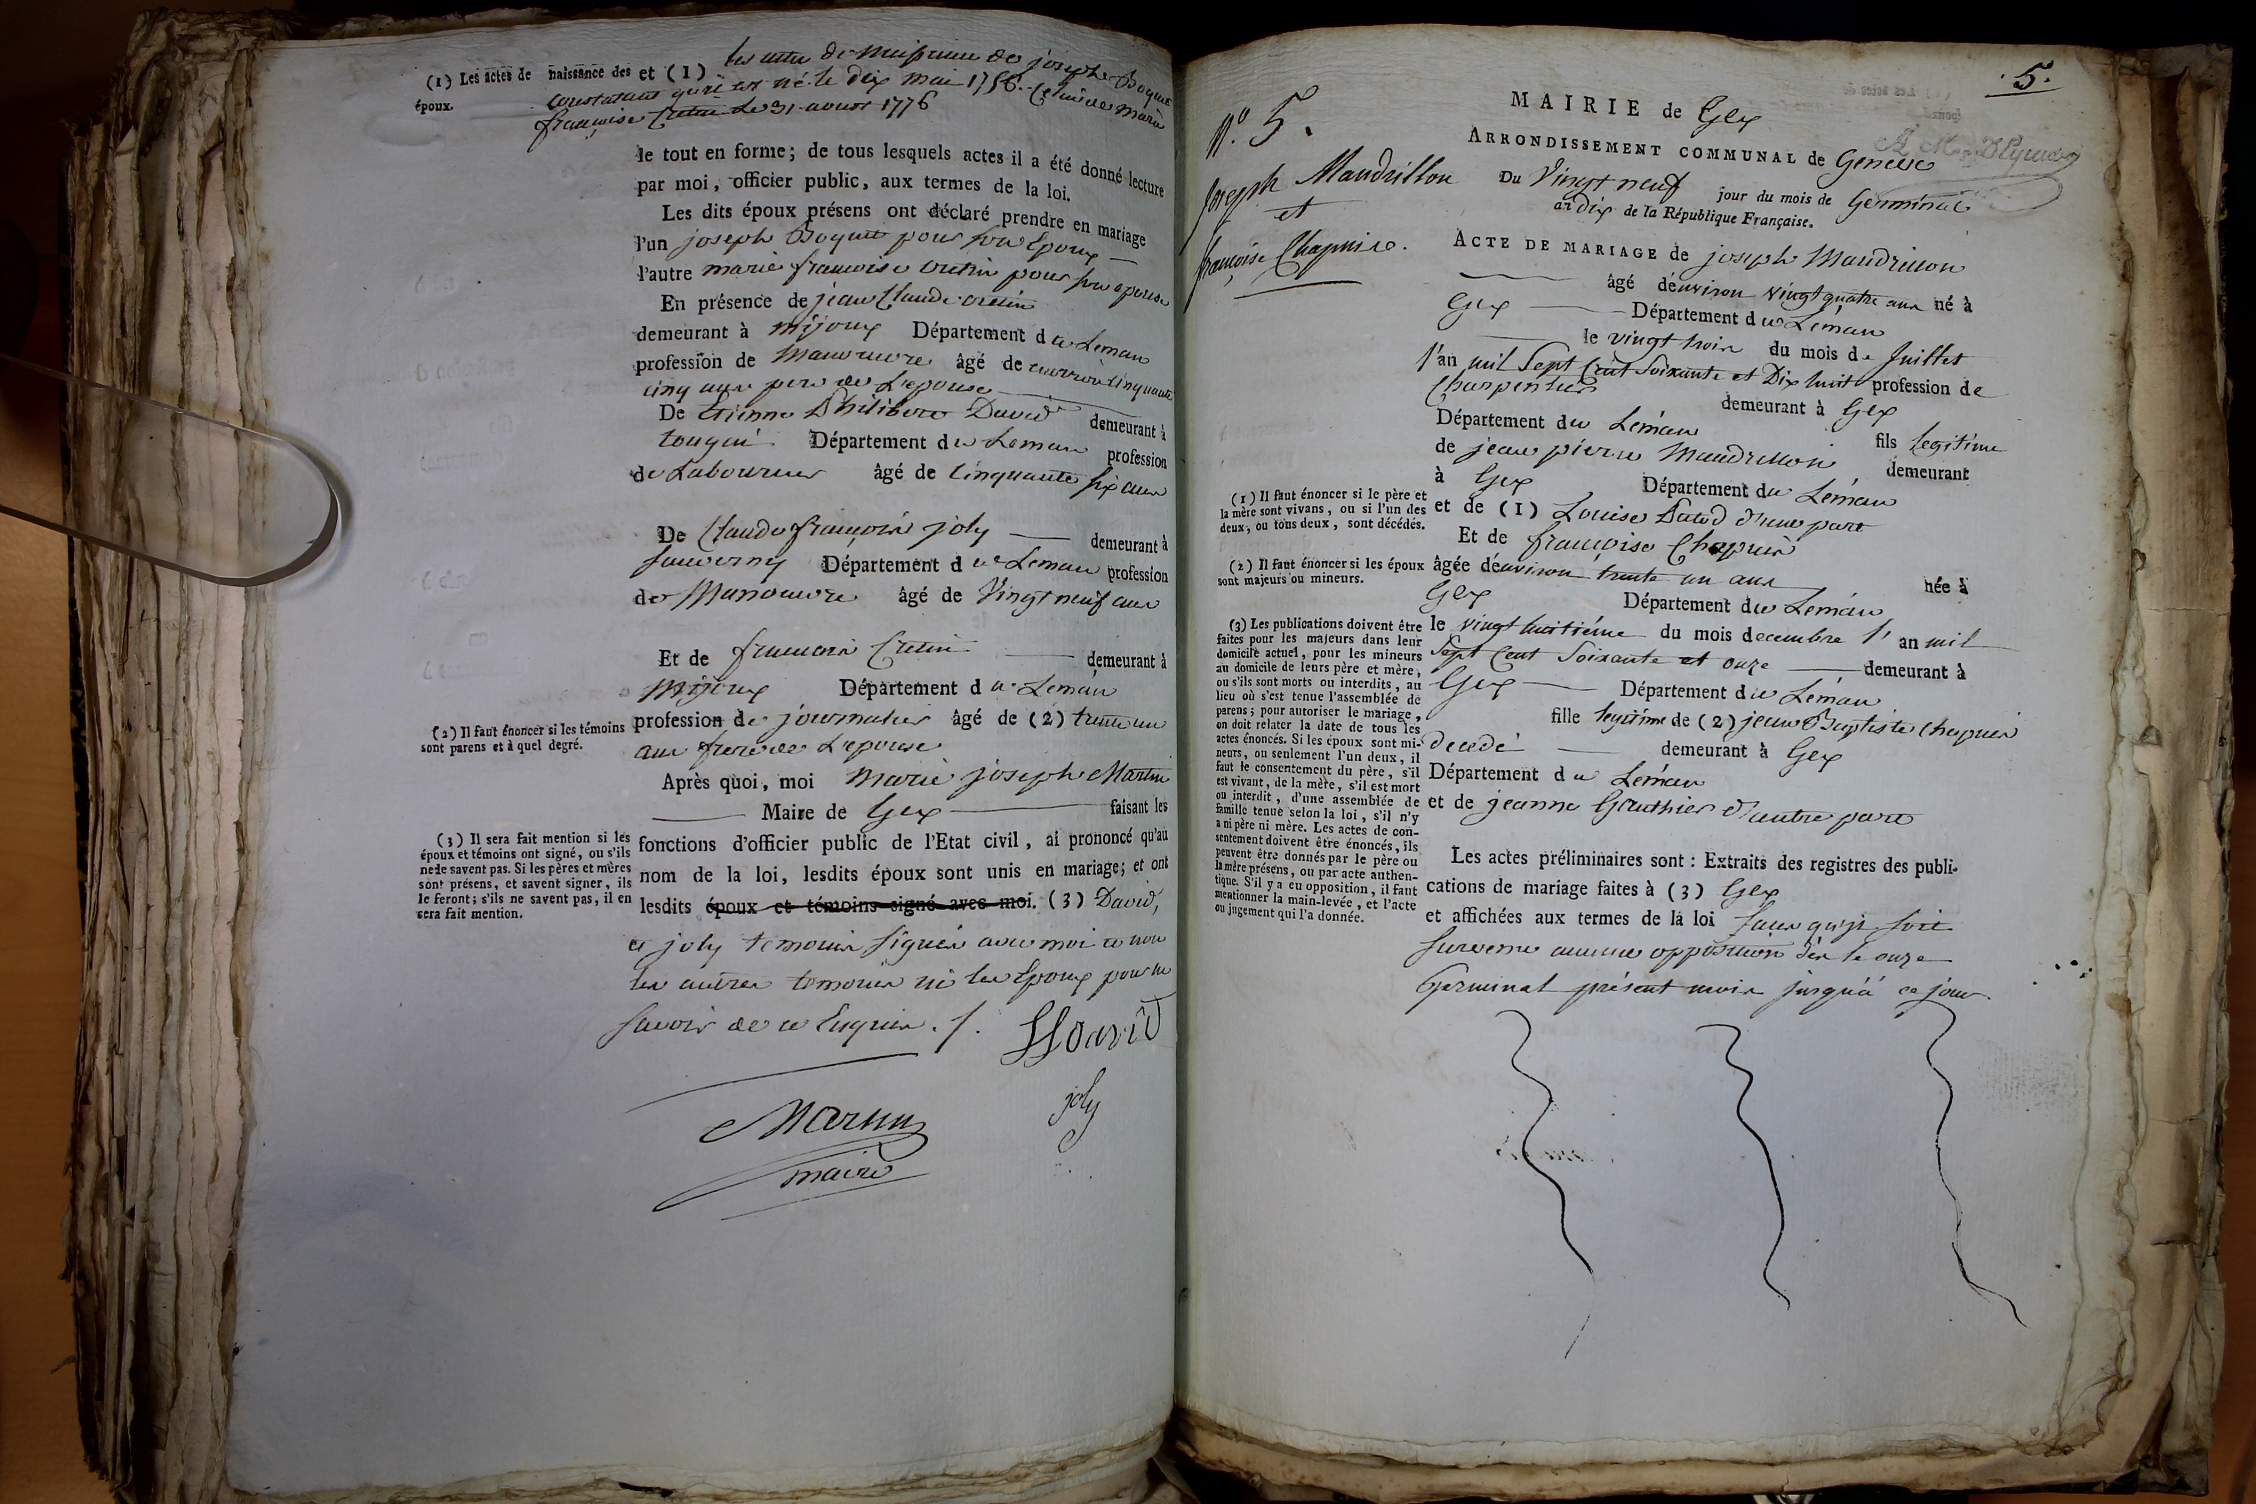 (1) Les actes de naissance des époux.
et (1) les actes de naissance de joseph Boquet
constatant qu'il est né le dix mai 1756. Celui de marie
françoise Cretin le 31 aoust 1776
le tout en forme; de tous lesquels actes il a été donné lecture
par moi, officier public, aux termes de la loi.
Les dits époux présens ont déclaré prendre en mariage
l'un joseph Boquet pour son Epoux
l'autre marie francoise cretin pour son epouse
En présence de jean Claude cretin
demeurant à mijoux Département du Leman
profession de Manoeuvre âgé de environ cinquante
cinq ans pere de L'epouse
De Etienne Philibert David demeurant à
tougin Département du Leman profession
de Laboureur âgé de Cinquante six ans
De Claude francois joly demeurant à
Sauverny Département du Leman profession
de Manoeuvre âgé de Vingt neuf ans
Et de francois Cretin demeurant à
Mijoux Département du Leman
(2) Il faut énoncer si les témoins
sont parens et à quel degré.
profession de journalier âgé de (2) trente un
ans frere de L'epouse
Après quoi, moi Marie joseph Martin
Maire de Gex faisant les
(3) Il sera fait mention si les
époux et témoins ont signé, ou s'ils
ne le savent pas. Si les pères et mères
sont présens, et savent signer, ils
le feront; s'ils ne savent pas, il en
sera fait mention.
fonctions d'officier public de l'Etat civil, ai prononcé qu'au
nom de la loi, lesdits époux sont unis en mariage; et ont
lesdits époux et témoins signé avec moi. (3) David,
et joly temoins signés avec moi et non
les autres temoins ni les Epoux pour ne
savoir de ce Enquis
David
joly
Martin
maire
5.
N.º 5.
Joseph Maudrillon
et
françoise Chapuis.
MAIRIE de Gex
ARRONDISSEMENT COMMUNAL de Geneve
Du Vingt neuf jour du mois de Germinal
an dix de la République Française.
ACTE DE MARIAGE de joseph Maudrillon
âgé d'environ vingt quatre ans né à
Gex Département du Léman
le vingt trois du mois de Juillet
l'an mil Sept Cent Soixante et Dix huit profession de
Charpentier demeurant à Gex
Département du Léman fils legitime
de jean pierre Maudrillon demeurant
à Gex Département du Léman
(1) Il faut énoncer si le père et
la mère sont vivans, ou si l'un des
deux, ou tous deux, sont décédés.
et de (1) Louise d'une part
Et de françoise Chapuis
(2) Il faut énoncer si les époux
sont majeurs ou mineurs.
âgée d'environ trente un ans née à
Gex Département du Léman
le vingt huitiéme du mois decembre l'an mil
Sept Cent Soixante et onze demeurant à
Gex Département du Léman
fille legitime de (2) jean Baptiste Chapuis
decedé demeurant à Gex
Département du Léman
et de jeanne Gauthier d'autre part
(3) Les publications doivent être
faites pour les majeurs dans leur
domicile actuel, pour les mineurs
au domicile de leurs père et mère,
ou s'ils sont morts ou interdits, au
lieu où s'est tenue l'assemblée de
parens; pour autoriser le mariage,
on doit relater la date de tous les
actes énoncés. Si les époux sont mi-
neurs, ou seulement l'un deux, il
faut le consentement du père, s'il
est vivant, de la mère, s'il est mort
ou interdit, d'une assemblée de
famille tenue selon la loi, s'il n'y
a ni père ni mère. Les actes de con-
sentement doivent être énoncés, ils
peuvent être donnés par le père ou
la mère présens, ou par acte authen-
tique. S'il y a eu opposition, il faut
mentionner la main-levée, et l'acte
ou jugement qui l'a donnée.
Les actes préliminaires sont : Extraits des registres des publi-
cations de mariage faites à (3) Gex
et affichées aux termes de la loi sans qu'il soit
survenu aucune opposition dès le onze
Germinal présent mois jusqu'à ce jour.